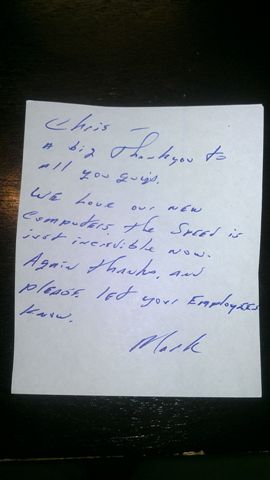 Chris —
A big Thankyou to
all you guys.
WE Love our new
Computers, the Speed is
just incredible now.
Again thanks, and
please let your Employees
know.
Mark